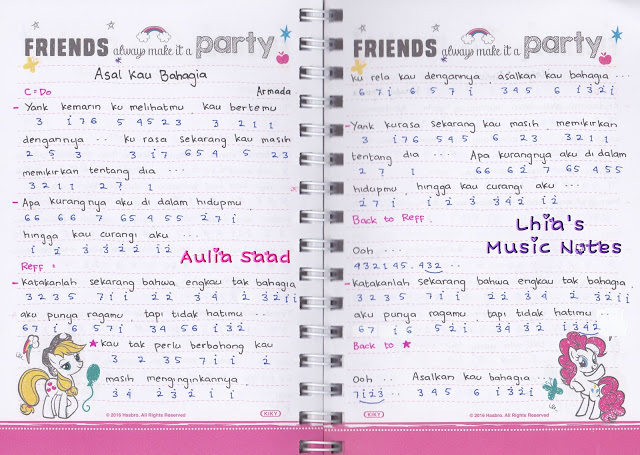 FRIENDS always make it a party
Asal Kau Bahagia
C = Do Armada
- Yank kemarin ku melihatmu kau bertemu
3 i 7 6 5 4 5 2 3 3 2 1 1
dengannya ... ku rasa sekarang kau masih
2 5 3 3 i 7 6 5 4 5 2 3
memikirkan tentang dia ...
3 2 1 1 2 7 1
- Apa kurangnya aku di dalam hidupmu
6 6 6 6 7 6 5 4 5 5 2 7 i
hingga kau curangi aku ...
i 2 3 3 2 2 i 2
Reff :
- Katakanlah sekarang bahwa engkau tak bahagia
3 2 3 5 7 i i 2 2 3 4 2 3 2 i i
aku punya ragamu tapi tidak hatimu ...
6 7 i 6 5 7 i 3 4 5 6 i 3 2
★ kau tak perlu berbohong kau
3 2 3 5 7 i i i
masih menginginkannya
3 4 2 3 2 i i
Aulia Saad
© 2016 Hasbro. All Rights Reserved
KIKY
FRIENDS always make it a party
ku rela kau dengannya asalkan kau bahagia ...
6 7 i 6 5 7 i 3 4 5 6 i 3 2 i
- Yank kurasa sekarang kau masih memikirkan
3 i 7 6 5 4 5 6 2 3 3 2 1 1
tentang dia ... Apa kurangnya aku di dalam
2 7 1 6 6 6 2 7 6 5 4 5 5
hidupmu hingga kau curangi aku ...
2 7 i i 2 3 3 4 2 i 2
Back to Reff.
Lhia's
Music Notes
Ooh ...
4 3 2 1 4 5 . 4 3 2
- Katakanlah sekarang bahwa engkau tak bahagia
3 2 3 5 7 i i 2 2 3 4 2 3 2 i i
aku punya ragamu tapi tidak hatimu ...
6 7 i 6 5 2 i 3 4 3 2 i 3 4 2
Back to ★
Ooh ... Asalkan kau bahagia ...
7 i 2 3 ... 3 4 5 6 i 3 2 i
KIKY
© 2016 Hasbro. All Rights Reserved